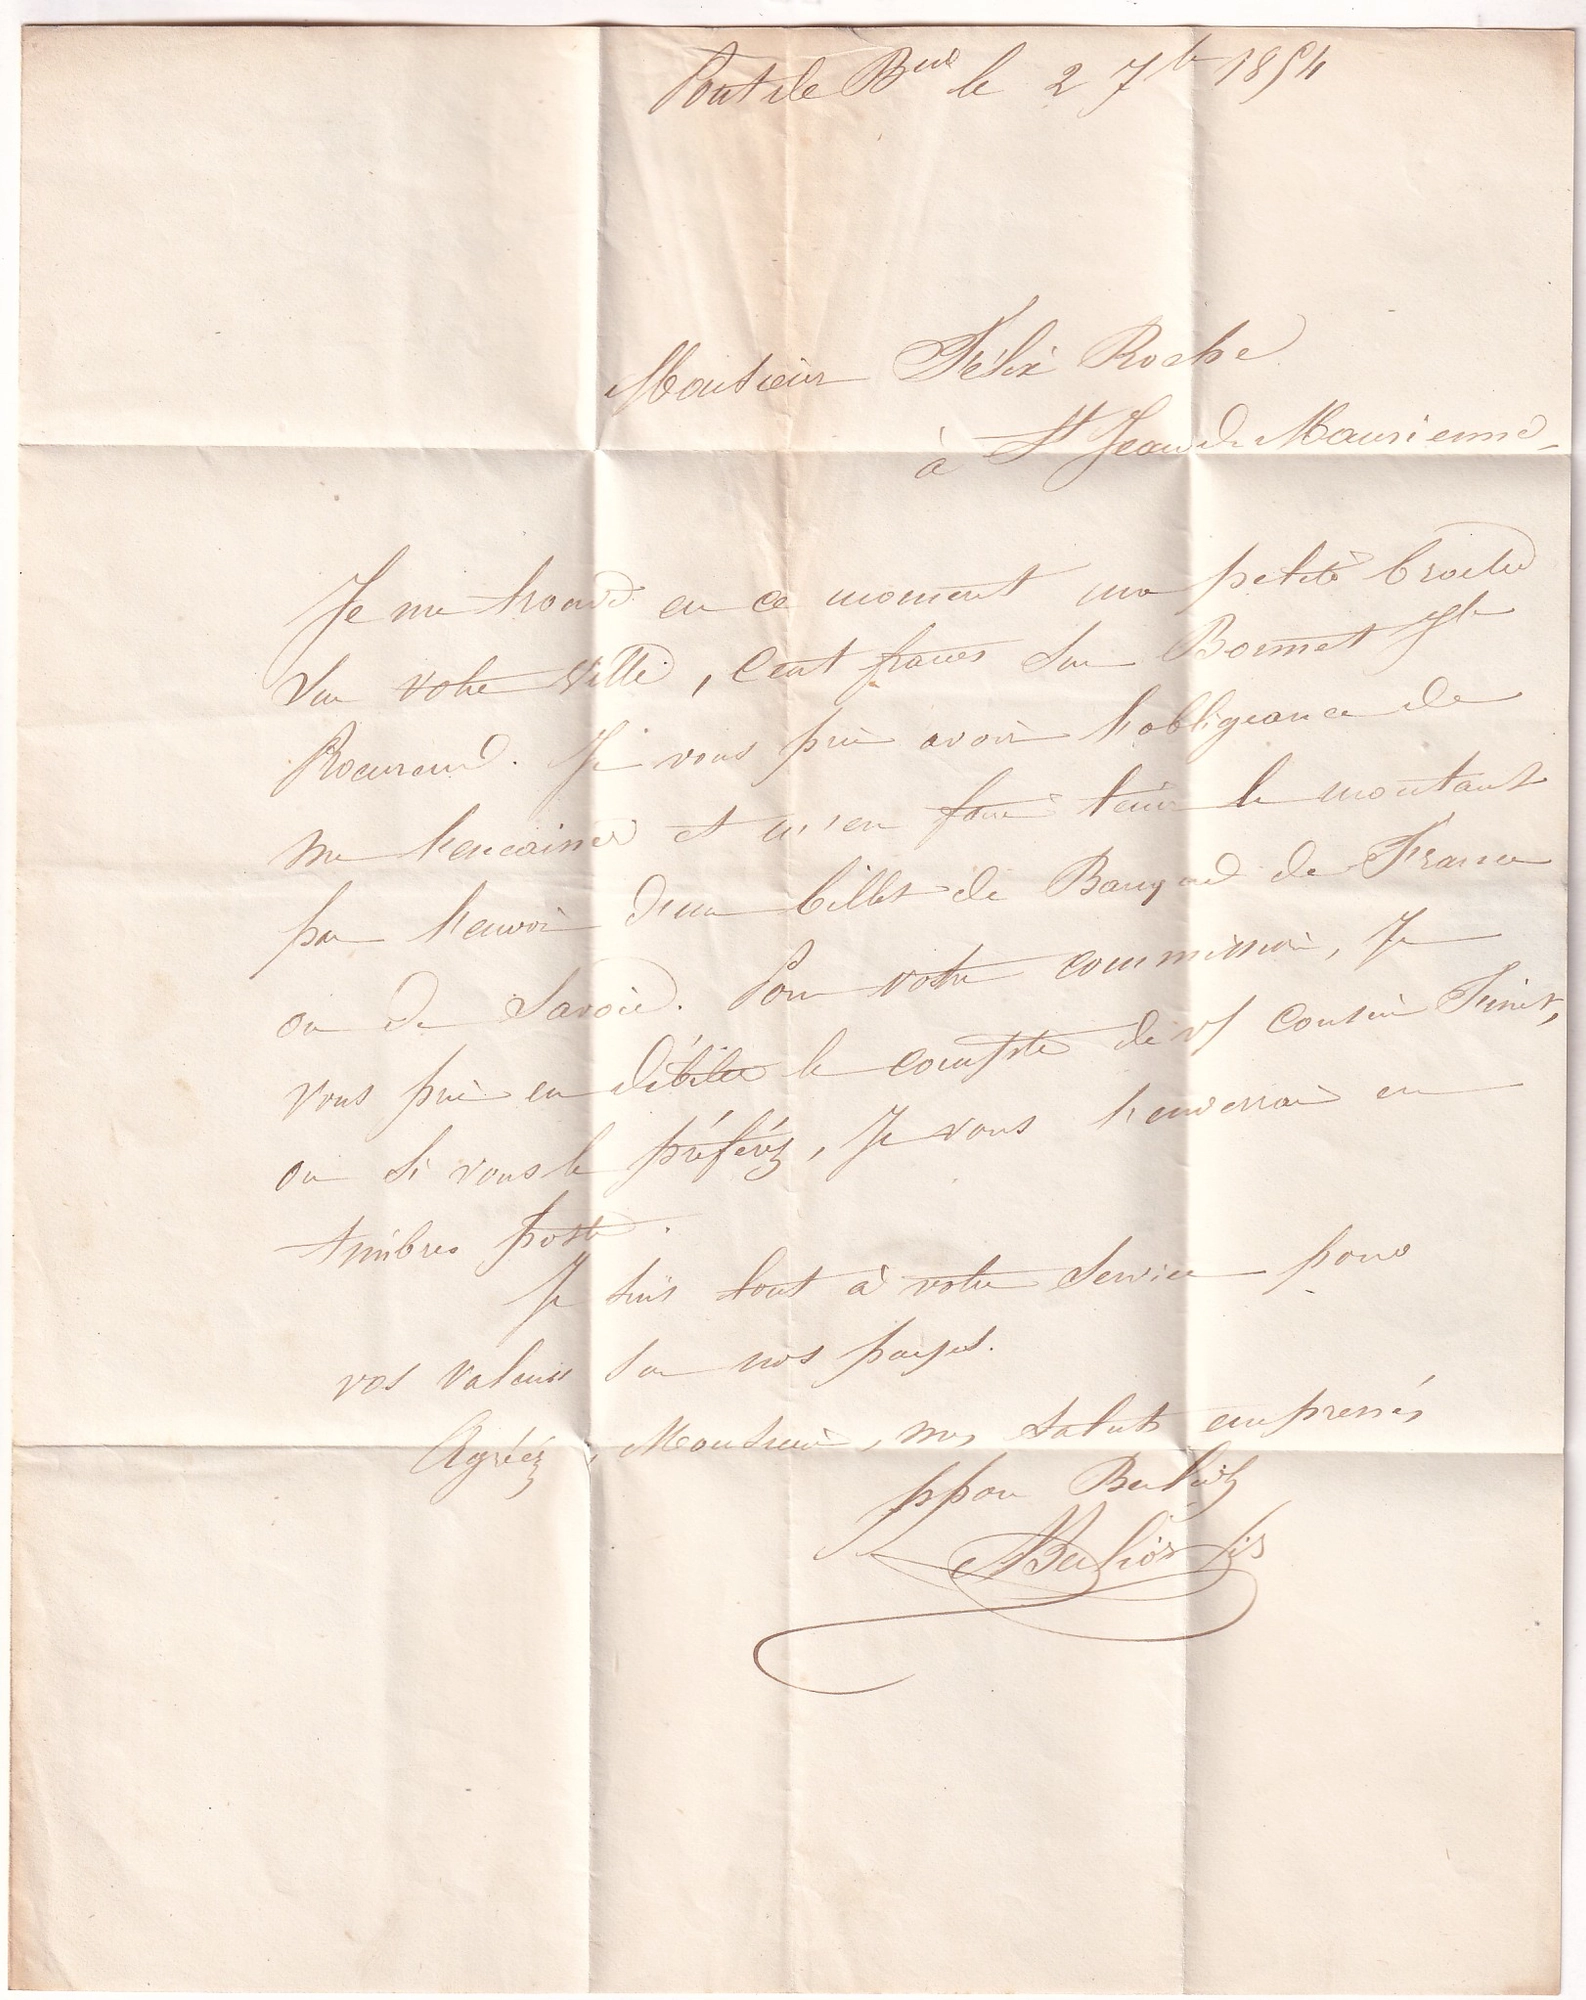 Pont de B^(vin) le 2 7^(b) 1854
Monsieur Félix Roche
à S^(t) Jean de Maurienne
Je me trouve en ce moment une petite broche
sur votre ville, Cent francs sur Bonnet J^(h)
. Je vous prie avoir l'obligeance de
me l'encaisser et m'en faire tenir le montant
par l'envoi d'un billet de Banque de France
ou de Savoie. Pour votre commission, Je
vous prie en débiter le compte de v/ cousin
ou si vous le préférez, Je vous l'enverrai en
timbres poste.
Je suis tout à votre service pour
vos valeurs sur nos pays.
Agréez, Monsieur, mes saluts empressés
ppon
fils